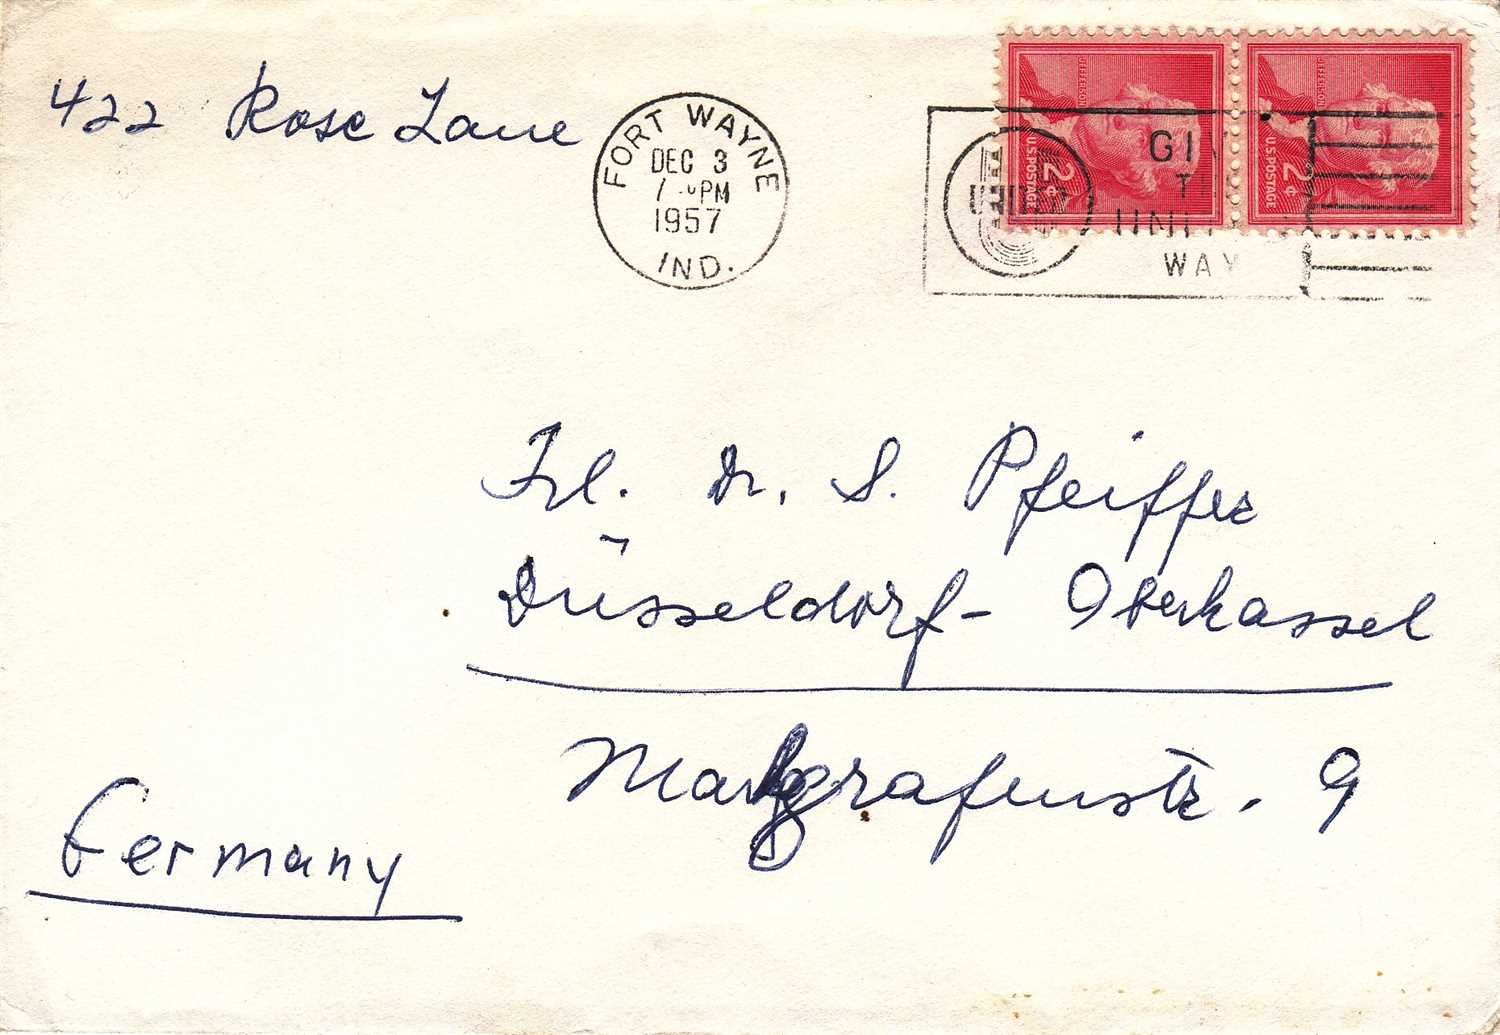 422 Rose Lane
FORT WAYNE
DEC 3
PM
1957
IND.
JEFFERSON
U.S. POSTAGE
2¢
JEFFERSON
U.S. POSTAGE
2¢
UNITED
WAY
Frl. Dr. S. Pfeiffer
Düsseldorf- Oberkassel
Markgrafenstr. 9
Germany